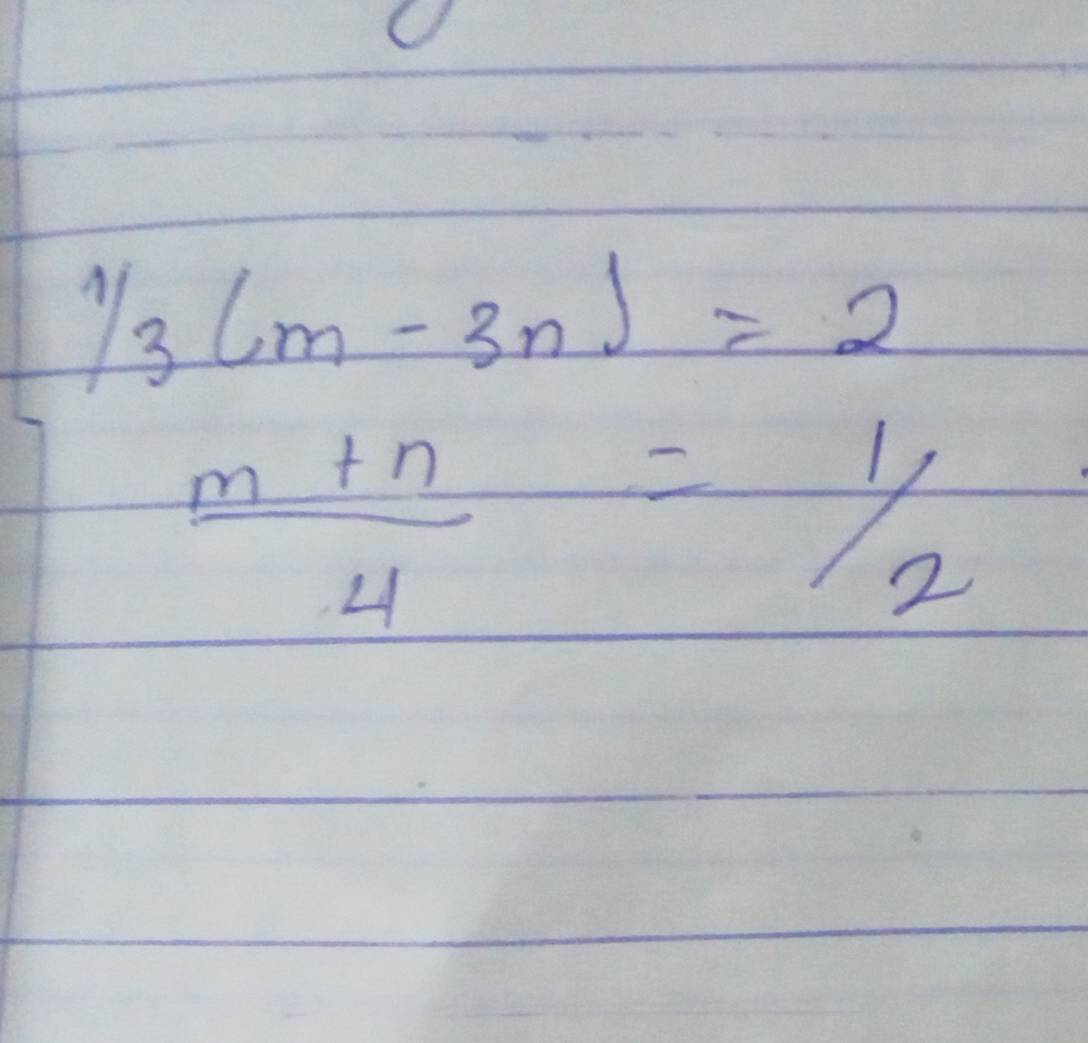 1/3 (m - 3n) = 2
m + n = 1/2
4